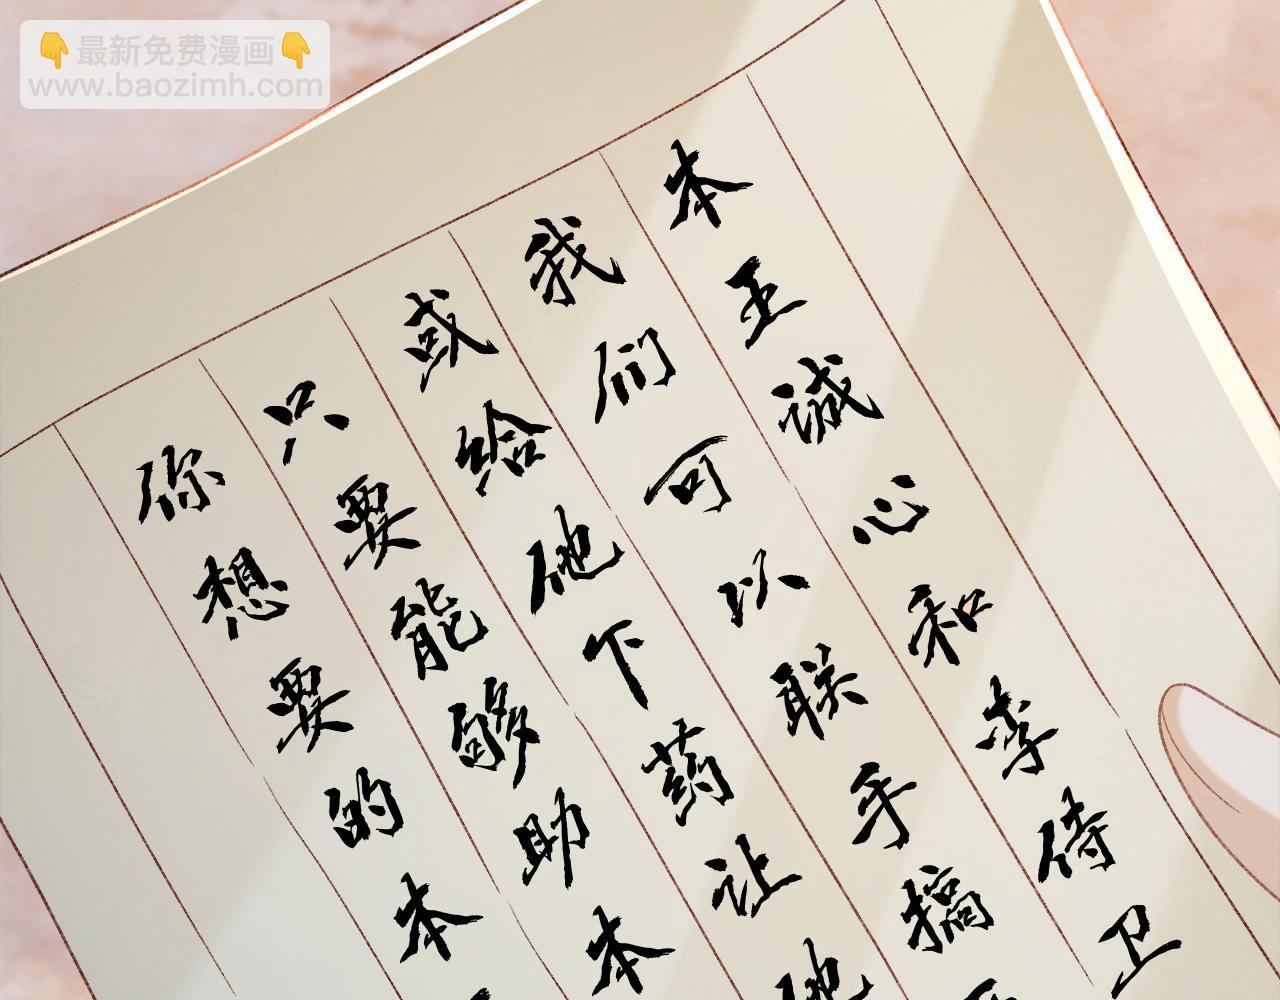 最新免费漫画
www.baozimh.com
本王诚心和李侍卫
我们可以联手搞
或给他下药让他
只要能够助本
你想要的本